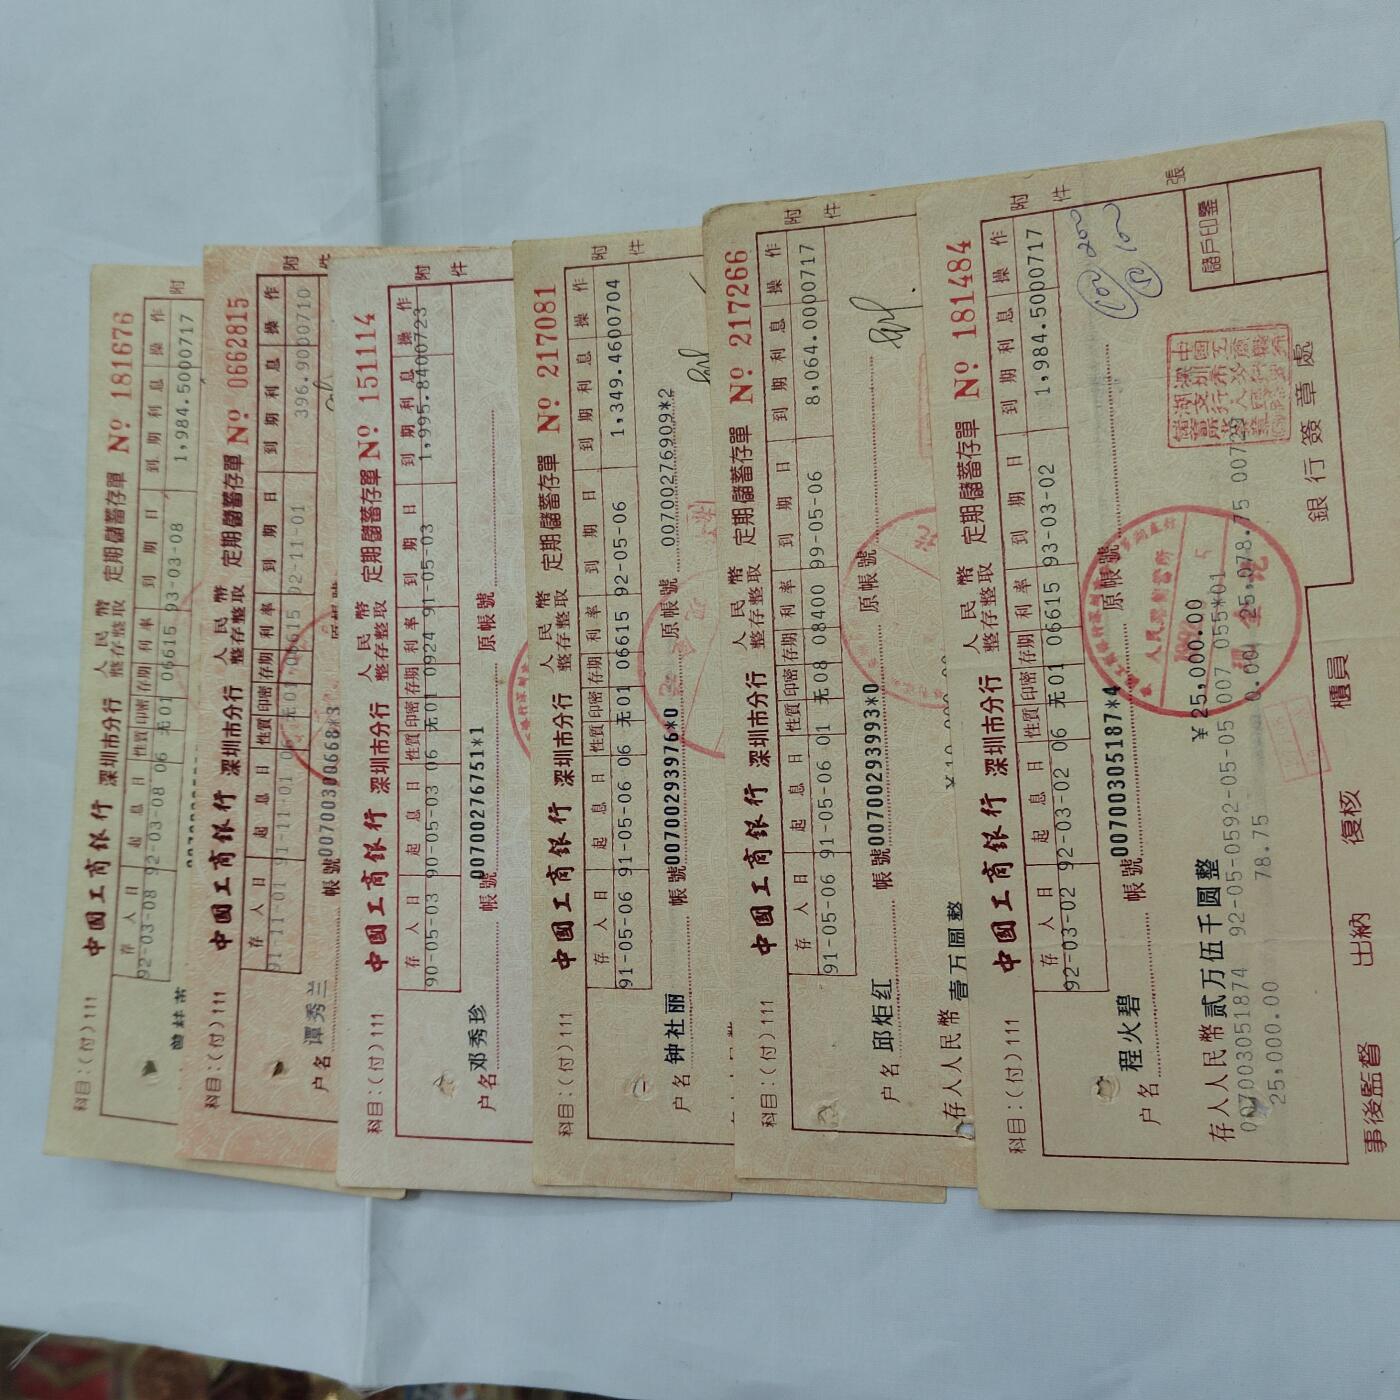 科目:(付)111
中國工商銀行 深圳市分行 人民幣 整存整取 定期儲蓄存單 Nº 181676
附
存入日 起息日 性質 印密 存期 利率 到期日 到期利息 操作
92-03-08 92-03-08 06 无 01 06615 93-03-08 1,984.50 00717
科目:(付)111
中國工商銀行 深圳市分行 人民幣 整存整取 定期儲蓄存單 Nº 0662815
附件
存入日 起息日 性質 印密 存期 利率 到期日 到期利息 操作
91-11-01 91-11-01 06 无 01 06615 92-11-01 396.90 00710
户名 谭秀兰 帳號 00700300668*3
科目:(付)111
中國工商銀行 深圳市分行 人民幣 整存整取 定期儲蓄存單 Nº 151114
附件
存入日 起息日 性質 印密 存期 利率 到期日 到期利息 操作
90-05-03 90-05-03 06 无 01 0924 91-05-03 1,995.84 00723
户名 邓秀珍 帳號 00700276751*1 原帳號
科目:(付)111
中國工商銀行 深圳市分行 人民幣 整存整取 定期儲蓄存單 Nº 217081
附件
存入日 起息日 性質 印密 存期 利率 到期日 到期利息 操作
91-05-06 91-05-06 06 无 01 06615 92-05-06 1,349.46 00704
户名 钟社丽 帳號 00700293976*0 原帳號 00700276909*2
科目:(付)111
中國工商銀行 深圳市分行 人民幣 整存整取 定期儲蓄存單 Nº 217266
附件
存入日 起息日 性質 印密 存期 利率 到期日 到期利息 操作
91-05-06 91-05-06 01 无 08 08400 99-05-06 8,064.00 00717
户名 邱炬红 帳號 00700293993*0 原帳號
存入人民幣 壹万圆整 ¥10,000.00
科目:(付)111
中國工商銀行 深圳市分行 人民幣 整存整取 定期儲蓄存單 Nº 181484
附件 張
存入日 起息日 性質 印密 存期 利率 到期日 到期利息 操作
92-03-02 92-03-02 06 无 01 06615 93-03-02 1,984.50 00717
户名 程火碧 帳號 00700305187*4 原帳號
存入人民幣 贰万伍千圆整 ¥25,000.00
00700305187 4 92-05-05 92-05-05 007 055*01
25,000.00 78.75 0.00 25,078.75
儲戶印鑒
銀行簽章處
事後監督 出納 復核 櫃員